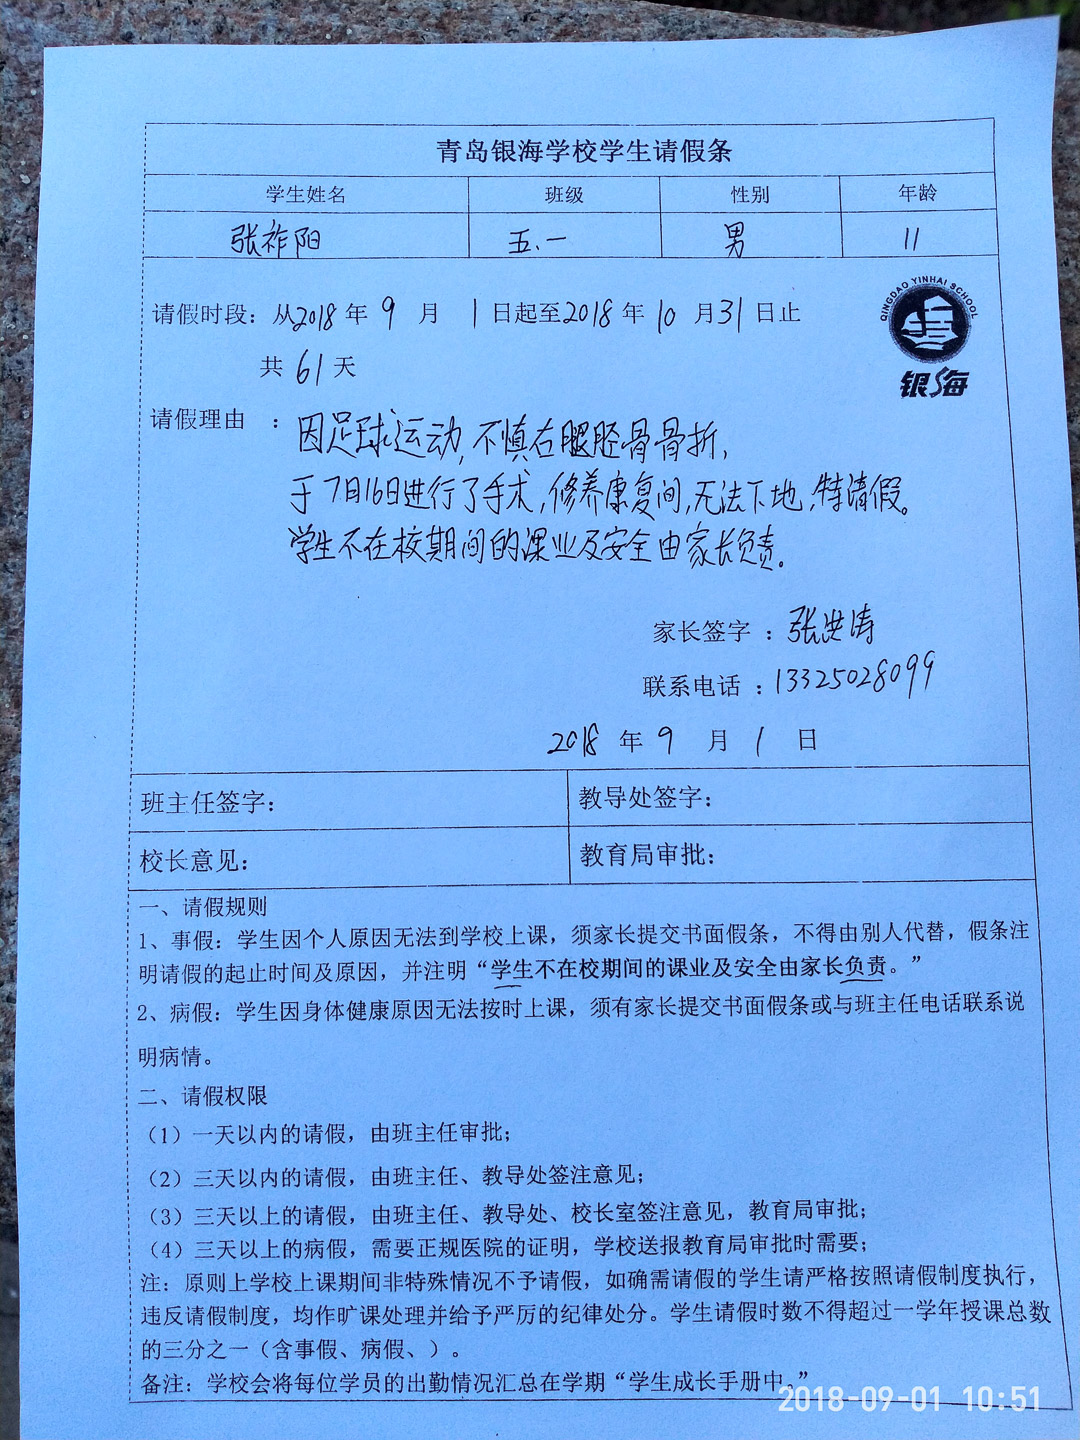 青岛银海学校学生请假条
学生姓名 班级 性别 年龄
张祚阳 五.一 男 11
QINGDAO YINHAI SCHOOL
银海
请假时段：从2018年 9 月 1日起至2018年10月31日止
共 61 天
请假理由 ：因足球运动，不慎右腿胫骨骨折，
于7月16日进行了手术，修养康复间，无法下地，特请假。
学生不在校期间的课业及安全由家长负责。
家长签字 ：张洪涛
联系电话 ：13325028099
2018 年 9 月 1 日
班主任签字： 教导处签字：
校长意见： 教育局审批：
一、请假规则
1、事假：学生因个人原因无法到学校上课，须家长提交书面假条，不得由别人代替，假条注
明请假的起止时间及原因，并注明“学生不在校期间的课业及安全由家长负责。”
2、病假：学生因身体健康原因无法按时上课，须有家长提交书面假条或与班主任电话联系说
明病情。
二、请假权限
（1）一天以内的请假，由班主任审批；
（2）三天以内的请假，由班主任、教导处签注意见；
（3）三天以上的请假，由班主任、教导处、校长室签注意见，教育局审批；
（4）三天以上的病假，需要正规医院的证明，学校送报教育局审批时需要；
注：原则上学校上课期间非特殊情况不予请假，如确需请假的学生请严格按照请假制度执行，
违反请假制度，均作旷课处理并给予严厉的纪律处分。学生请假时数不得超过一学年授课总数
的三分之一（含事假、病假、）。
备注：学校会将每位学员的出勤情况汇总在学期“学生成长手册中。”
2018-09-01 10:51